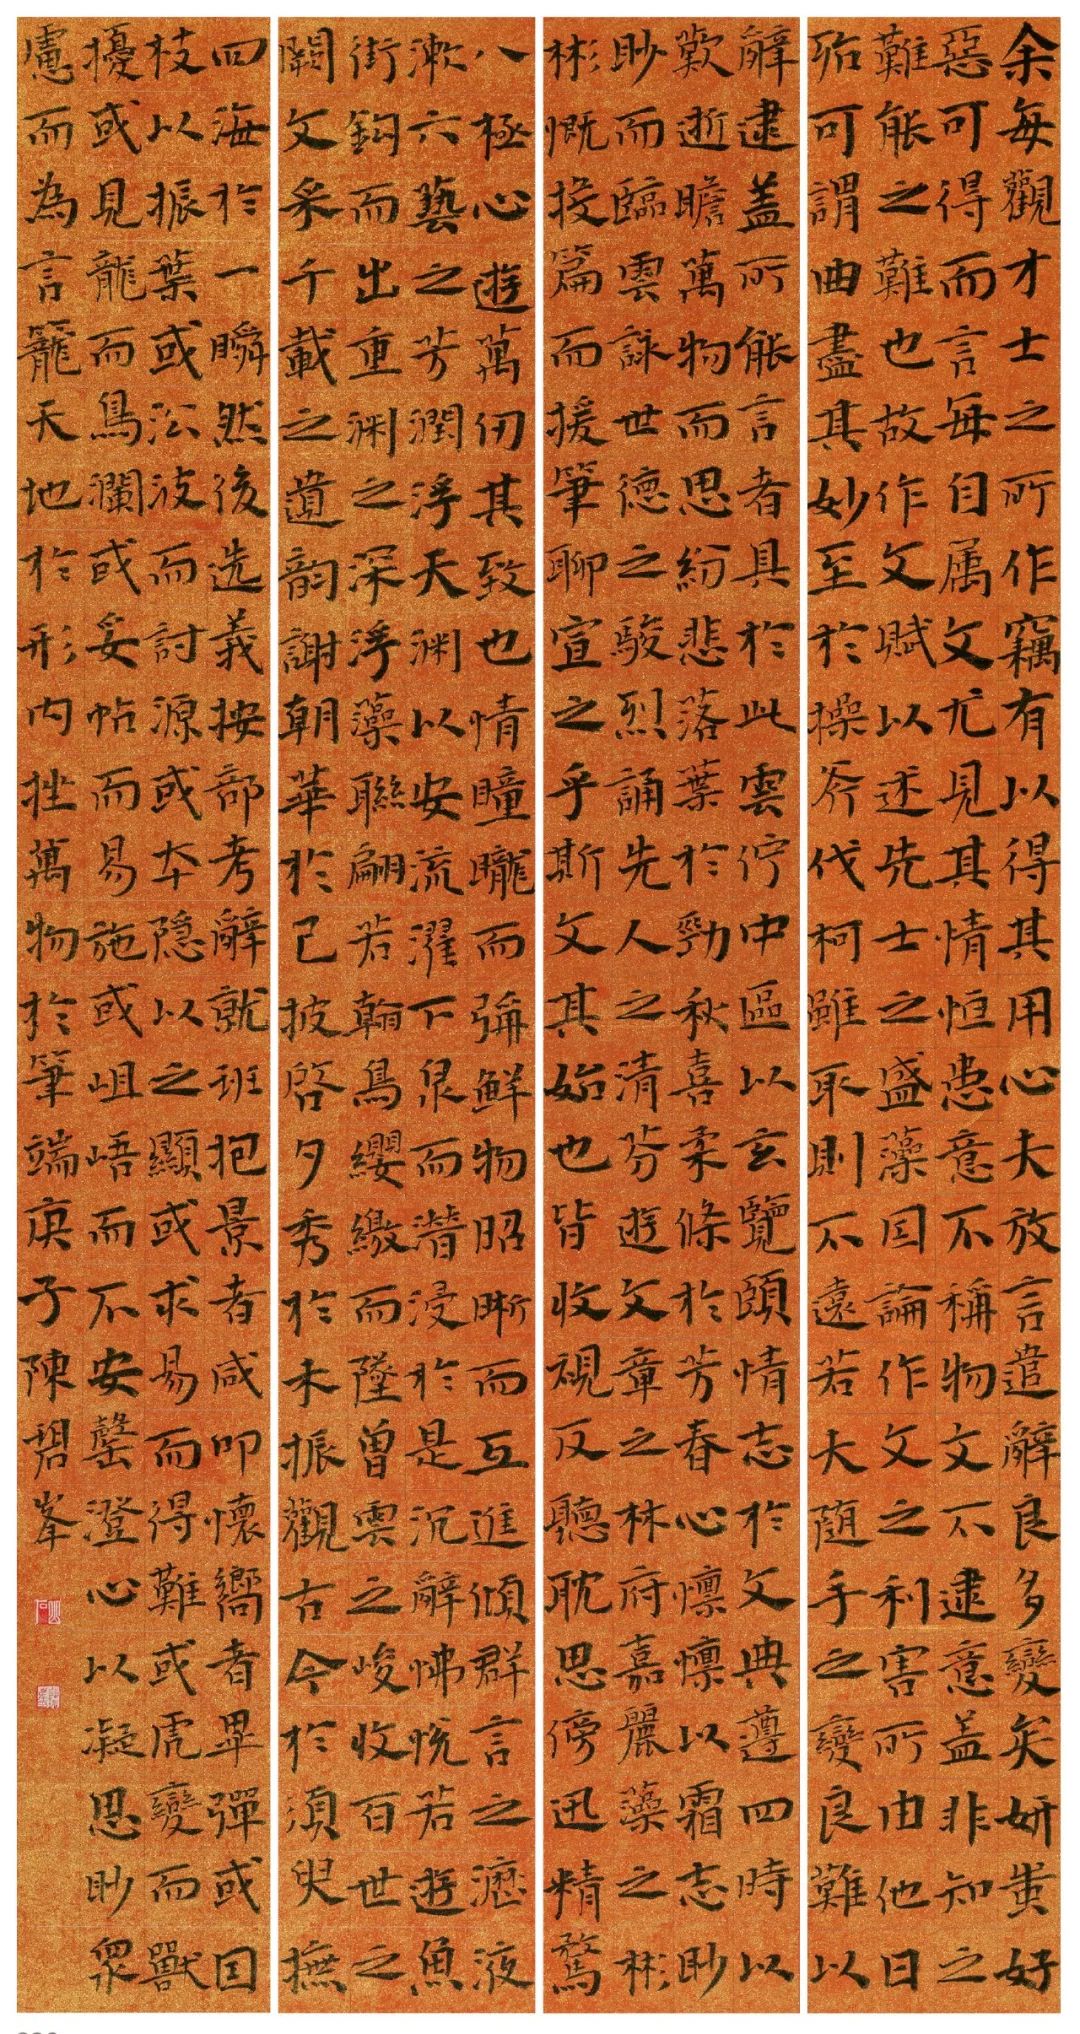 余每觀才士之所作竊有以得其用心夫放言遣辭良多變矣妍蚩好
惡可得而言每自属文尤見其情恒患意不稱物文不逮意盖非知之
難能之難也故作文賦以述先士之盛藻因論作文之利害所由他日
殆可謂曲盡其妙至於操斧代柯雖取則不遠若大随手之變良難以
辭逮盖所能言者具於此雲佇中區以玄覽頤情志於文典遵四時以
歎逝瞻萬物而思紛悲落葉於勁秋喜柔條於芳春心懍懍以霜志眇
眇而臨雲詠世德之駿烈誦先人之清芬遊文章之林府嘉麗藻之彬
彬慨投篇而援筆聊宣之乎斯文其始也皆收視反聽耽思傍迅精騖
八極心遊萬仞其致也情曈曨而彌鮮物昭晰而互進傾群言之瀝液
漱六藝之芳潤浮天渊以安流濯下泉而潛浸於是沉辭怫悅若遊魚
街鈎而出重渊之深浮藻聯翩若翰鳥纓繳而墜曾雲之峻收百世之
闕文采千載之遺韻謝朝華於已披啓夕秀於未振觀古今於須臾撫
四海於一瞬然後选義按部考辭就班抱景者咸叩懷嚮者畢彈或因
枝以振葉或沿波而討源或本隱以之顯或求易而得難或虎變而獸
擾或見龍而鳥瀾或妥帖而易施或岨峿而不安罄澄心以凝思眇衆
慮而為言籠天地於形内挫萬物於筆端庚子陳碧峯